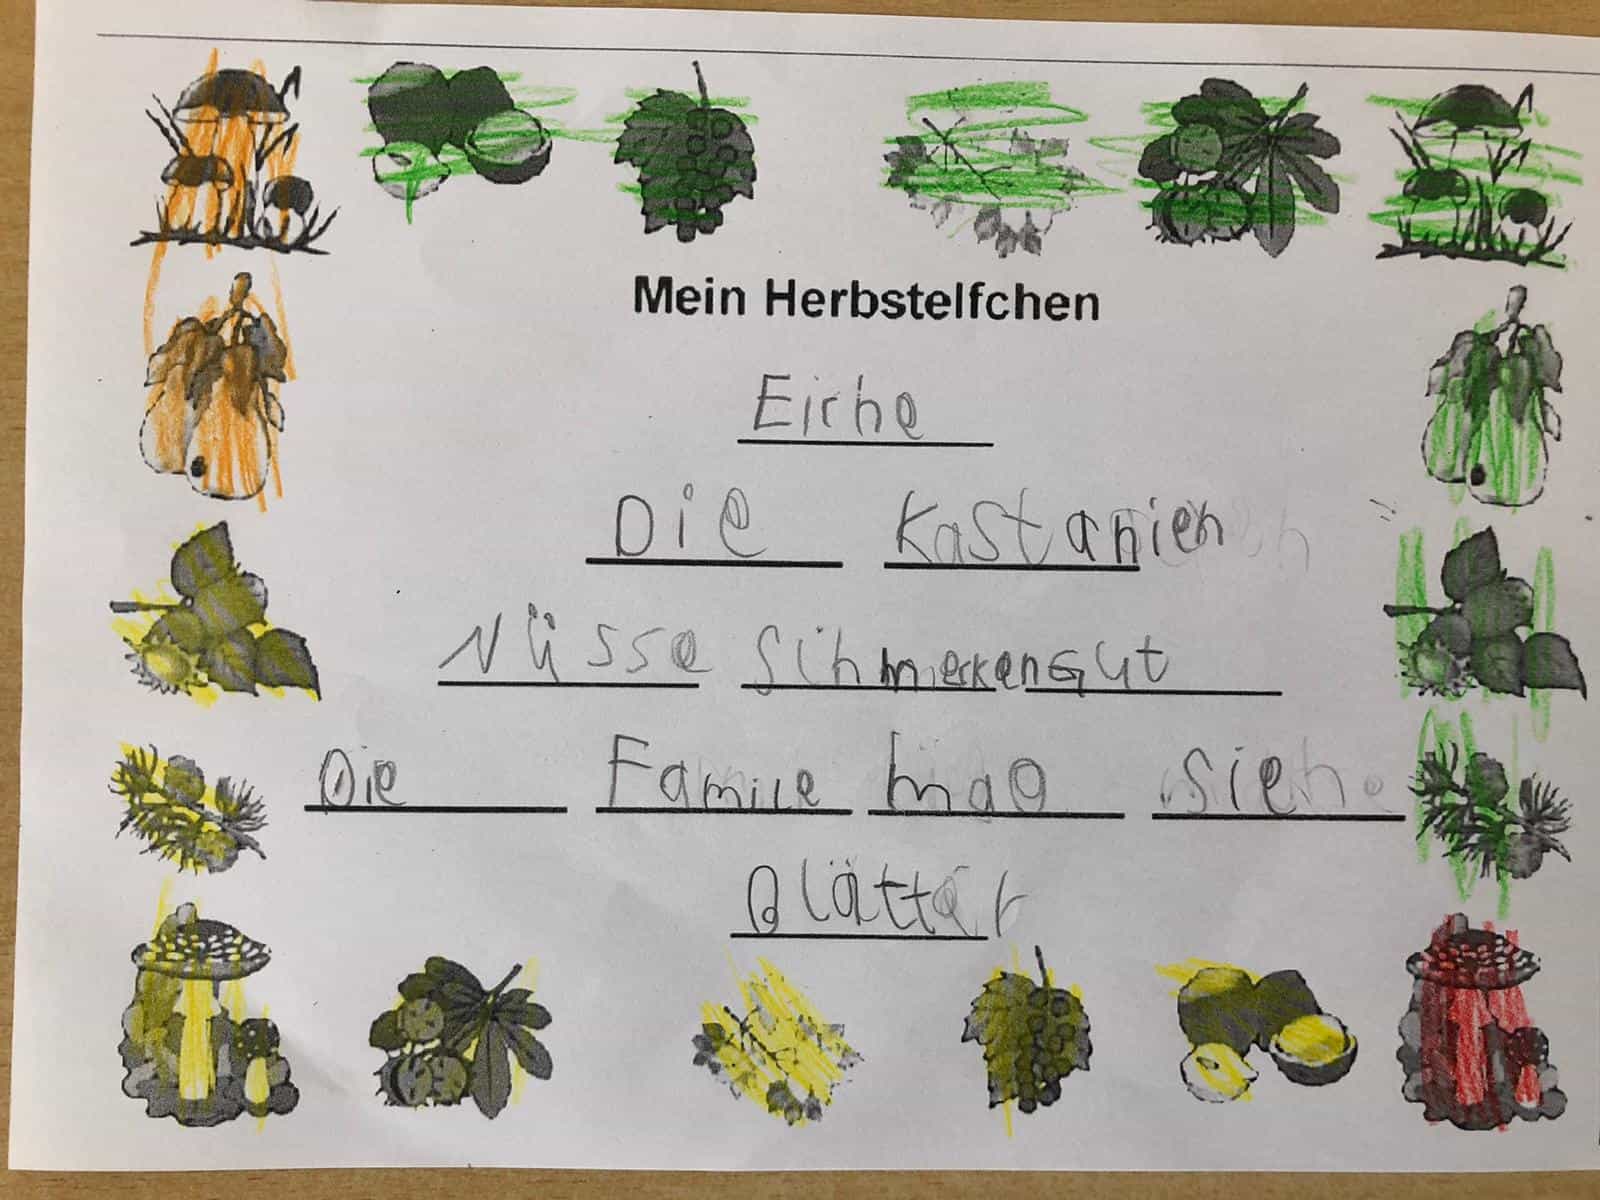 Mein Herbstelfchen
Eiche
Die Kastanien
Nüsse Schmecken Gut
Die Familie mag sie
Blätter